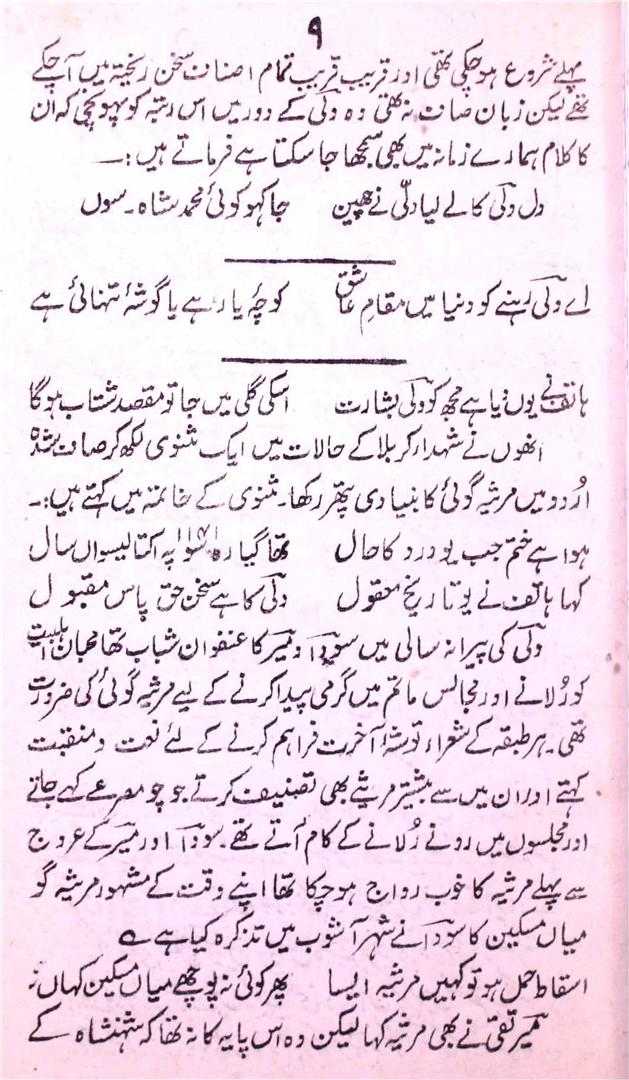 ۹
پہلے شروع ہوچکی تھی اور قریب قریب تمام اصناف سخن ریختہ میں آچکے
تھے لیکن زبان صاف نہ تھی وہ ولی کے دور میں اس رتبہ کو پہونچی کہ ان
کا کلام ہمارے زمانہ میں بھی سمجھا جا سکتا ہے فرماتے ہیں :۔
دل ولی کا لے لیا دلّی نے چھین جا کہو کوئی محمد شاہ ۔ سوں
اے ولی رہنے کو دنیا میں مقامِ عاشق کوچۂ یار ہے یا گوشۂ تنہائی ہے
ہاتف نے یوں دیا ہے مجھ کو ولی بشارت اسکی گلی میں جا تو مقصد شتاب ہوگا
انھوں نے شہداء کربلا کے حالات میں ایک مثنوی لکھ کر صاف شدہ
اُردو میں مرثیہ گوئی کا بنیادی پتھر رکھا۔ مثنوی کے خاتمہ میں کہتے ہیں :۔
ہوا ہے ختم جب یو درد کا حال تھا گیارہ سو پہ اکتالیسواں سال ۱۱۴۱
کہا ہاتف نے یو تاریخ معقول ولی کا ہے سخن حق پاس مقبول
ولی کی پیرانہ سالی میں سودا و میر کا عنفوان شباب تھا محبان اہلبیت
کو رُلانے اور مجالس ماتم میں گرمی پیدا کرنے کے لیے مرثیہ گوئی کی ضرورت
تھی۔ ہر طبقہ کے شعراء توشۂ آخرت فراہم کرنے کے لئے نعت و منقبت
کہتے اور ان میں سے بیشتر مرثیے بھی تصنیف کرتے جو چو مصرعے کہے جاتے
اور مجلسوں میں رونے رُلانے کے کام آتے تھے۔ سودا اور میر کے عروج
سے پہلے مرثیہ کا خوب رواج ہوچکا تھا اپنے وقت کے مشہور مرثیہ گو
میاں مسکین کا سودا نے شہر آشوب میں تذکرہ کیا ہے ؎
اسقاط حمل ہو تو کہیں مرثیہ ایسا پھر کوئی نہ پوچھے میاں مسکین کہاں
میر تقی نے بھی مرثیہ کہا لیکن وہ اس پایہ کا نہ تھا کہ شہنشاہ کے